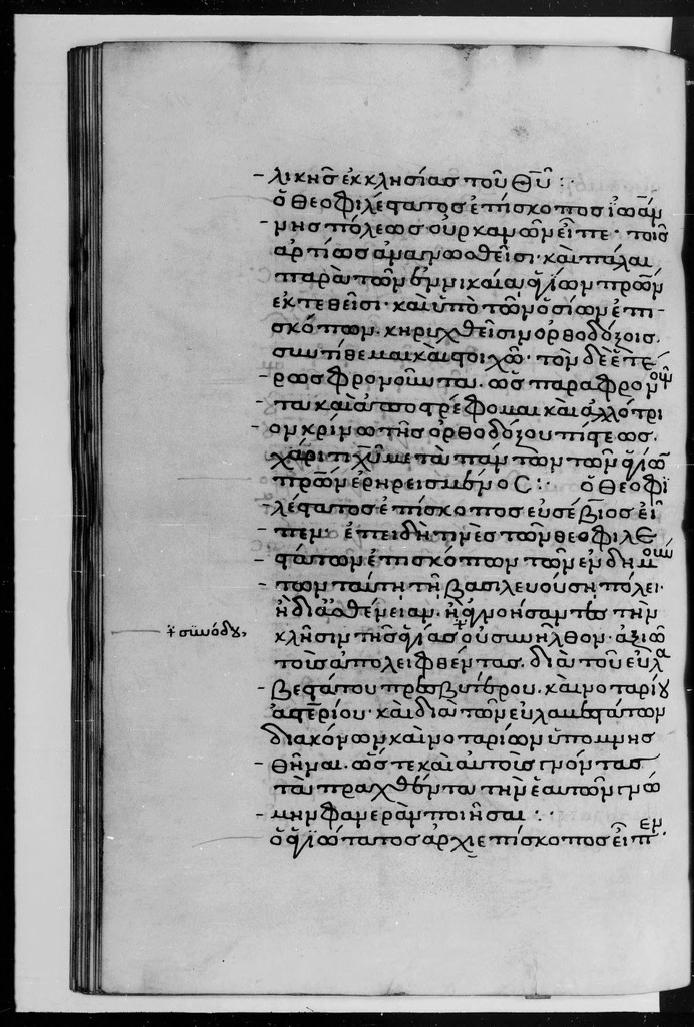 λικῆς ἐκκλησίας τοῦ Θῦ :·
ὁ Θεοφιλέστατος ἐπίσκοπος ἰωάν
νης πόλεως οὐρκανῶν εἶπε· τοῖς
ἀρτίως ἀναγνωσθεῖσι· καὶ πάλαι
παρὰ τῶν ἐν νικαίᾳ ἁγίων πρ̅ων
ἐκτεθεῖσι· καὶ ὑπὸ τῶν ὁσίων ἐπι-
σκόπων. κηρυχθεῖσιν ὀρθοδόξοις.
συντίθεμαι καὶ στοιχῶ· τὸν δὲ ἑτέ
ρως φρονοῦντα. ὡς παράφρον
τα καὶ ἀποστρέφομαι καὶ ἀλλότρι
ον κρίνω τῆς ὀρθοδόξου πίστεως.
χάριτι χ̅υ μετὰ πάντων τῶν ἁγίων
πρ̅ων ἐρηρεισμένος :· ὁ Θεοφι
λέστατος ἐπίσκοπος εὐσέβιος εἶ
πεν· ἐπειδή τινες τῶν θεοφιλε
στάτων ἐπισκόπων τῶν ἐνδημούν
των ταύτῃ τῇ βασιλευούσῃ πόλει·
ἢ διαθέμειαν. ἢ ἀγνοήσαντες τὴν
κλῆσιν τῆς ἁγίας οὐ συνῆλθον· ἀξιῶ
τοῖς ἀπολειφθέντας. διὰ τοῦ εὐλα
βεστάτου πρεσβυτέρου. καὶ νοταρίου
ἀστερίου· καὶ διὰ τῶν εὐλαβεστάτων
διακόνων καὶ νοταρίων ὑπομνησ
θῆναι. ὥστε καὶ αὐτοὺς γνόντας
τὰ πραχθέντα τὴν ἑαυτῶν γνώ
μην φανερὰν ποιῆσαι :·
ὁ ἁγιώτατος ἀρχιεπίσκοπος εἶπεν
συνόδου,